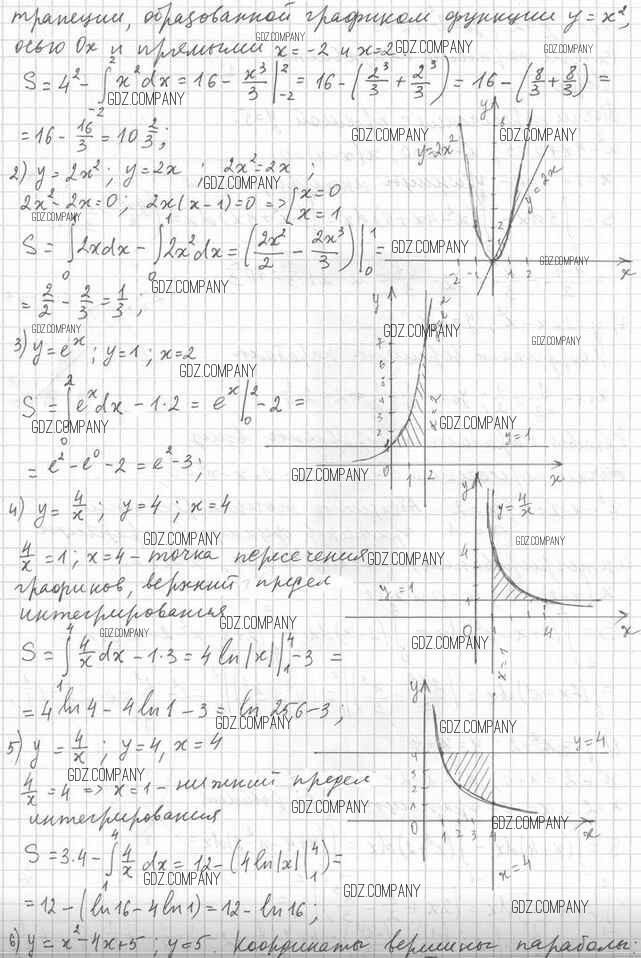 трапеции, образованной графиком функции y = x²,
осью Ox и прямыми x = -2 и x = 2.
S = 4² - ∫₋₂² x²dx = 16 - x³/3 |₋₂² = 16 - (2³/3 + 2³/3) = 16 - (8/3 + 8/3) =
= 16 - 16/3 = 10 2/3;
2) y = 2x²; y = 2x; 2x² = 2x;
2x² - 2x = 0; 2x(x-1) = 0 => [x = 0
x = 1
S = ∫₀¹ 2xdx - ∫₀¹ 2x²dx = (2x²/2 - 2x³/3) |₀¹ =
= 2/2 - 2/3 = 1/3;
3) y = eˣ; y = 1; x = 2
S = ∫₀² eˣdx - 1·2 = eˣ |₀² - 2 =
= e² - e⁰ - 2 = e² - 3;
4) y = 4/x; y = 4; x = 4
4/x = 1; x = 4 - точка пересечения
графиков, верхний предел
интегрирования
S = ∫₁⁴ 4/x dx - 1·3 = 4 ln|x| |₁⁴ - 3 =
= 4 ln 4 - 4 ln 1 - 3 = ln 256 - 3;
5) y = 4/x; y = 4, x = 4
4/x = 4 => x = 1 - нижний предел
интегрирования
S = 3·4 - ∫₁⁴ 4/x dx = 12 - (4 ln|x| |₁⁴) =
= 12 - (ln 16 - 4 ln 1) = 12 - ln 16;
6) y = x² - 4x + 5; y = 5. Координаты вершины параболы:
y
y = 2x²
y = 2x
-2 -1 1 2
x
y
x = 2
y = 1
0 1 2
x
y
y = 4/x
4
y = 1
0 4
x
x = 1
y
y = 4
0 1 2 3 4
x
x = 4
GDZ.COMPANY